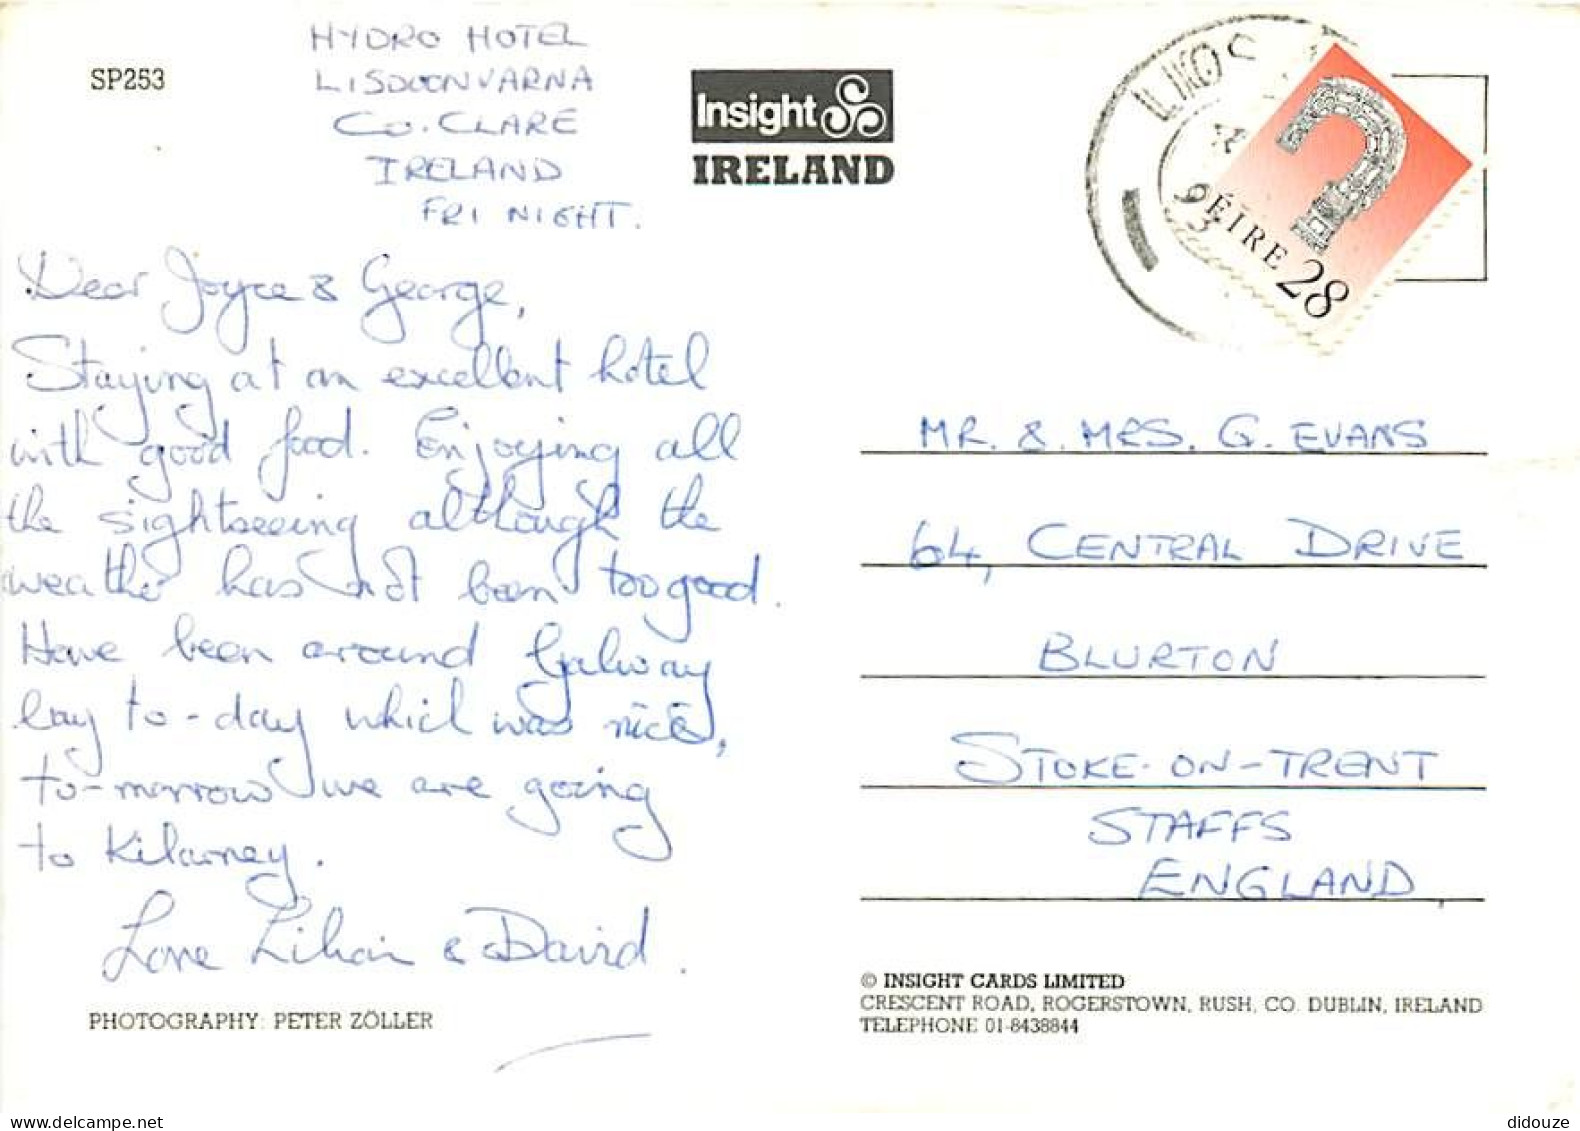 SP253
HYDRO HOTEL
LISDOONVARNA
CO. CLARE
IRELAND
FRI NIGHT.
Insight
IRELAND
93
ÉIRE 28
Dear Joyce & George,
Staying at an excellent hotel
with good food. Enjoying all
the sightseeing although the
weather has not been too good.
Have been around Galway
bay to-day which was nice,
to-morrow we are going
to Kilarney.
Love Lilian & David.
PHOTOGRAPHY: PETER ZÖLLER
MR. & MRS. G. EVANS
64, CENTRAL DRIVE
BLURTON
STOKE-ON-TRENT
STAFFS
ENGLAND
© INSIGHT CARDS LIMITED
CRESCENT ROAD, ROGERSTOWN, RUSH, CO. DUBLIN, IRELAND
TELEPHONE 01-8438844
didouze